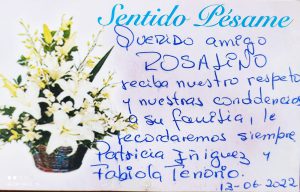 Sentido Pésame
Querido amigo
ROSALINO
reciba nuestro respeto
y nuestras condolencias
a su familia, le
recordaremos siempre
Patricia Iñiguez y
Fabiola Tenorio.
13-06-2022